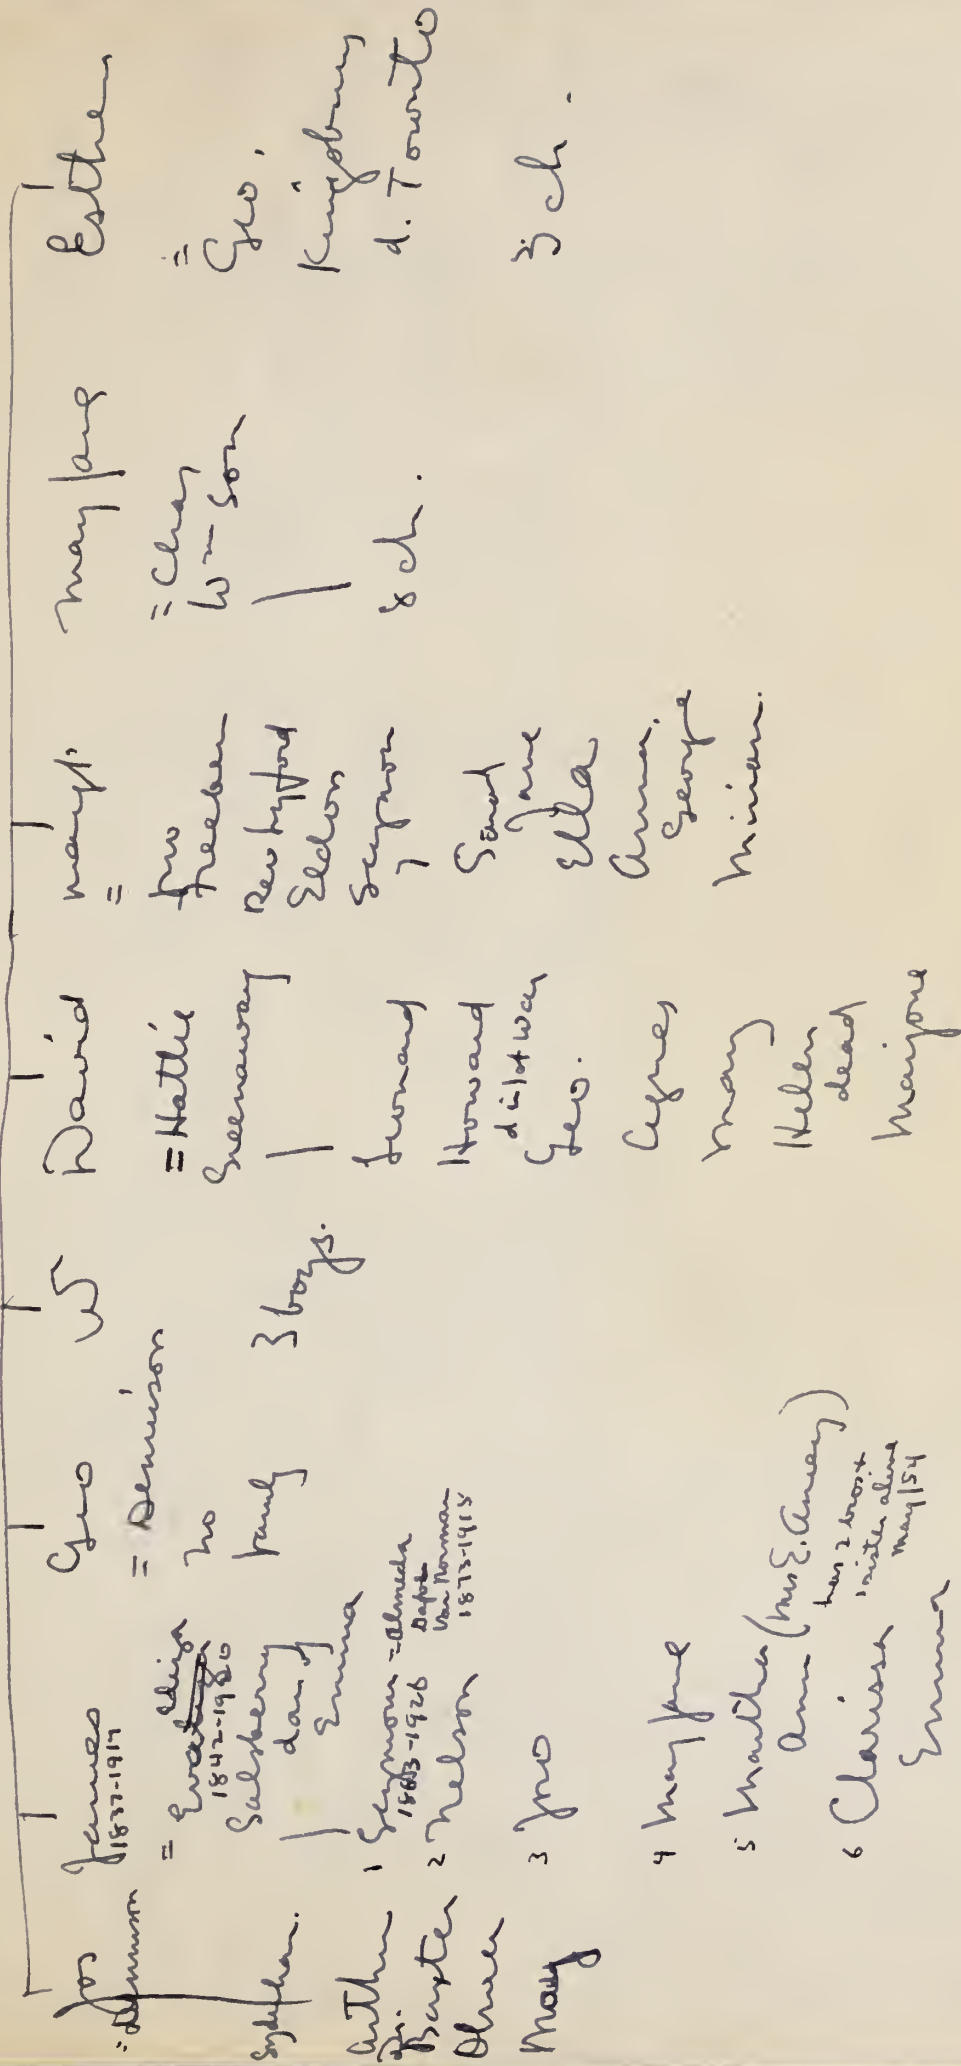 Jos
= Dennison
Arthur
Dr.
Baxter
Oliver
May
James
1837-1917
= Eliza
1842-1920
Salsberry
dau of
Emma
1 Seymour = Almeda
1863-1926
Van Norman
1873-1918
2 Nelson
3 Jno
4 Mary Jane
5 Martha
Ann (Mrs E. Amey)
has 2 bros +
1 sister alive
May/54
6 Clarissa
Emma
Geo
= Dennison
no
family
W
3 boys.
David
= Hattie
Greenaway
Leonard
Howard
d in 1st War
Geo.
Agnes
Mary
Helen
dead
Marjorie
Margt.
=
Jno
Freeman
Rev Byford
Eldon
Seymour
Sarah
Jane
Ella
Anna.
George
Miriam.
Mary Jane
= Chas
Wmson
8 ch.
Esther
=
Geo.
Kingsbury
d. Toronto
3 ch.